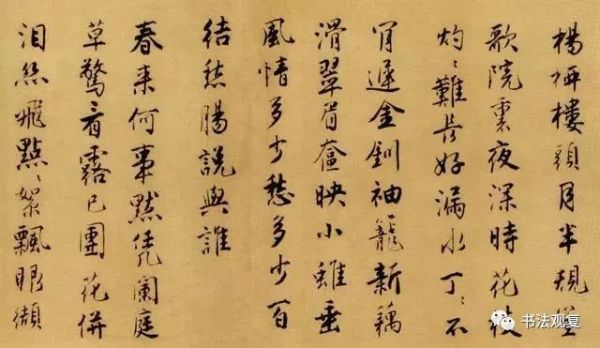 楊柳樓頭月半規笙
歌院裏夜深時花枝
灼〻難長好漏水丁〻不
肯遲金釧袖籠新藕
滑翠眉奩映小蛾垂
風情多少愁多少百
結愁腸說與誰
春来何事默凭闌庭
草驚看露已團花併
泪絲飛點〻絮飄眼纈
书法观复